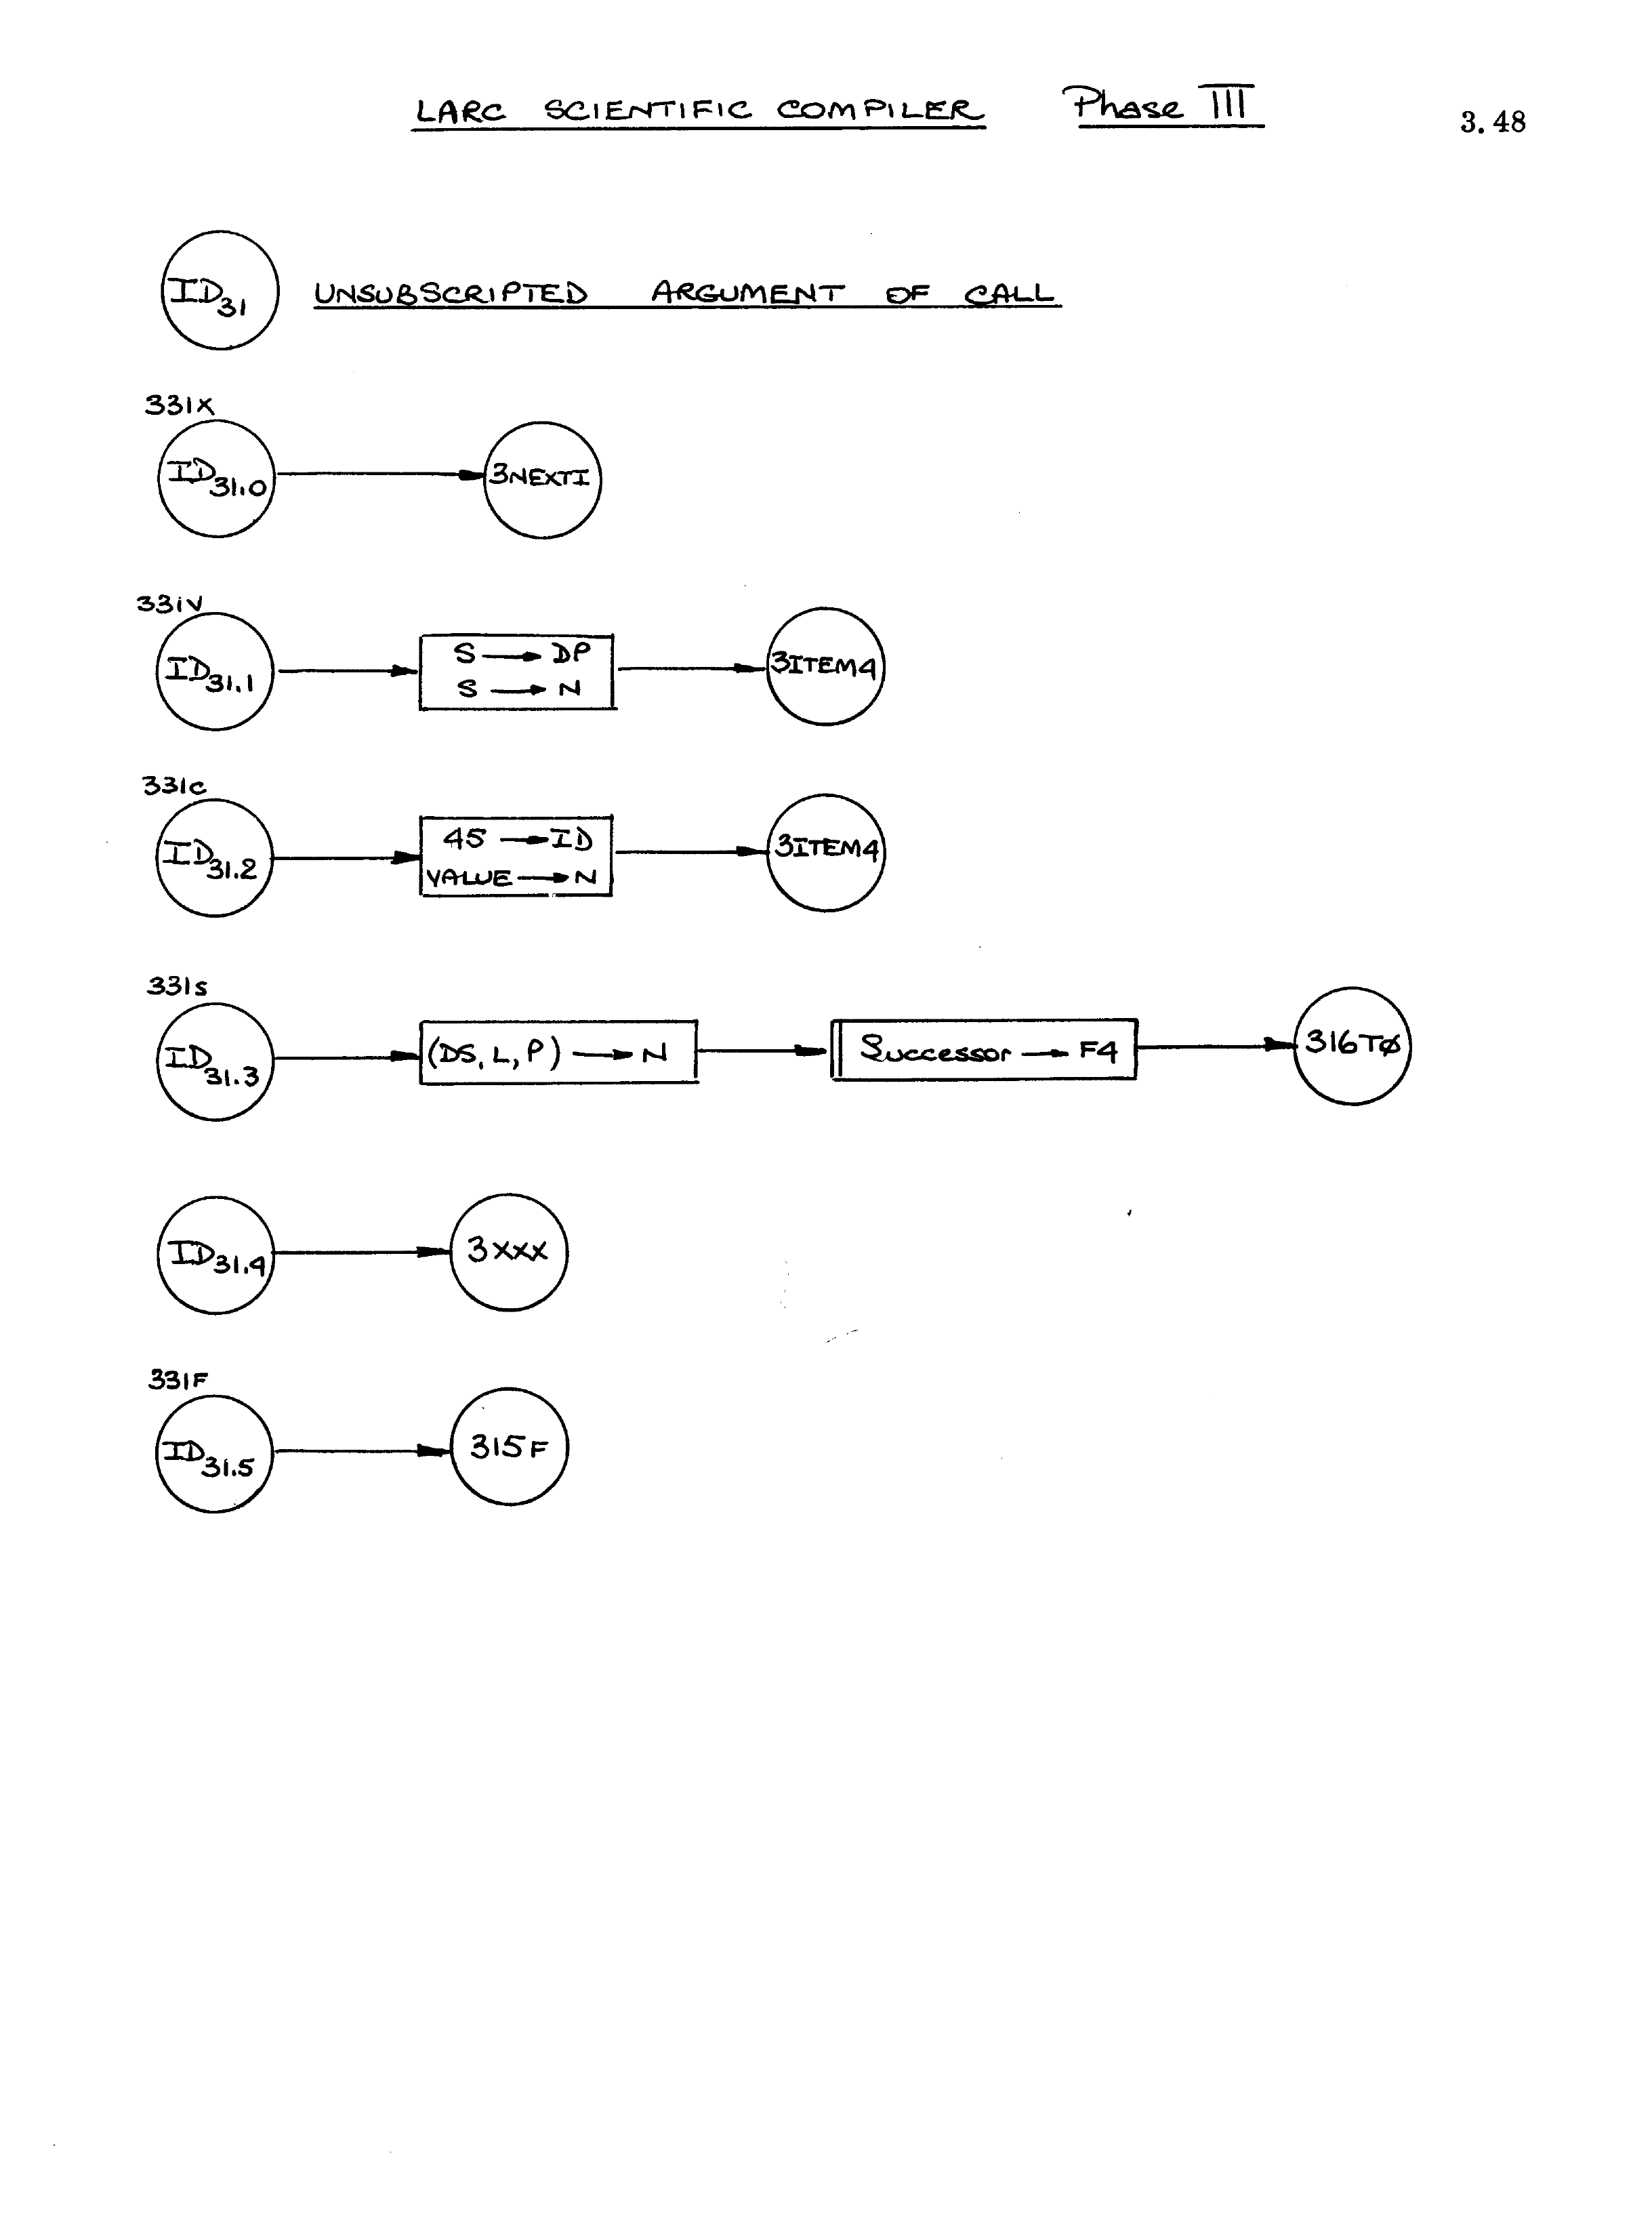 LARC SCIENTIFIC COMPILER Phase III 3.48
ID31 UNSUBSCRIPTED ARGUMENT OF CALL
331X
ID31.0 3NEXTI
331V
ID31.1 S → DP 3ITEM4
S → N
331C
ID31.2 45 → ID 3ITEM4
VALUE → N
331S
ID31.3 (DS, L, P) → N Successor → F4 316TØ
ID31.4 3XXX
331F
ID31.5 315F